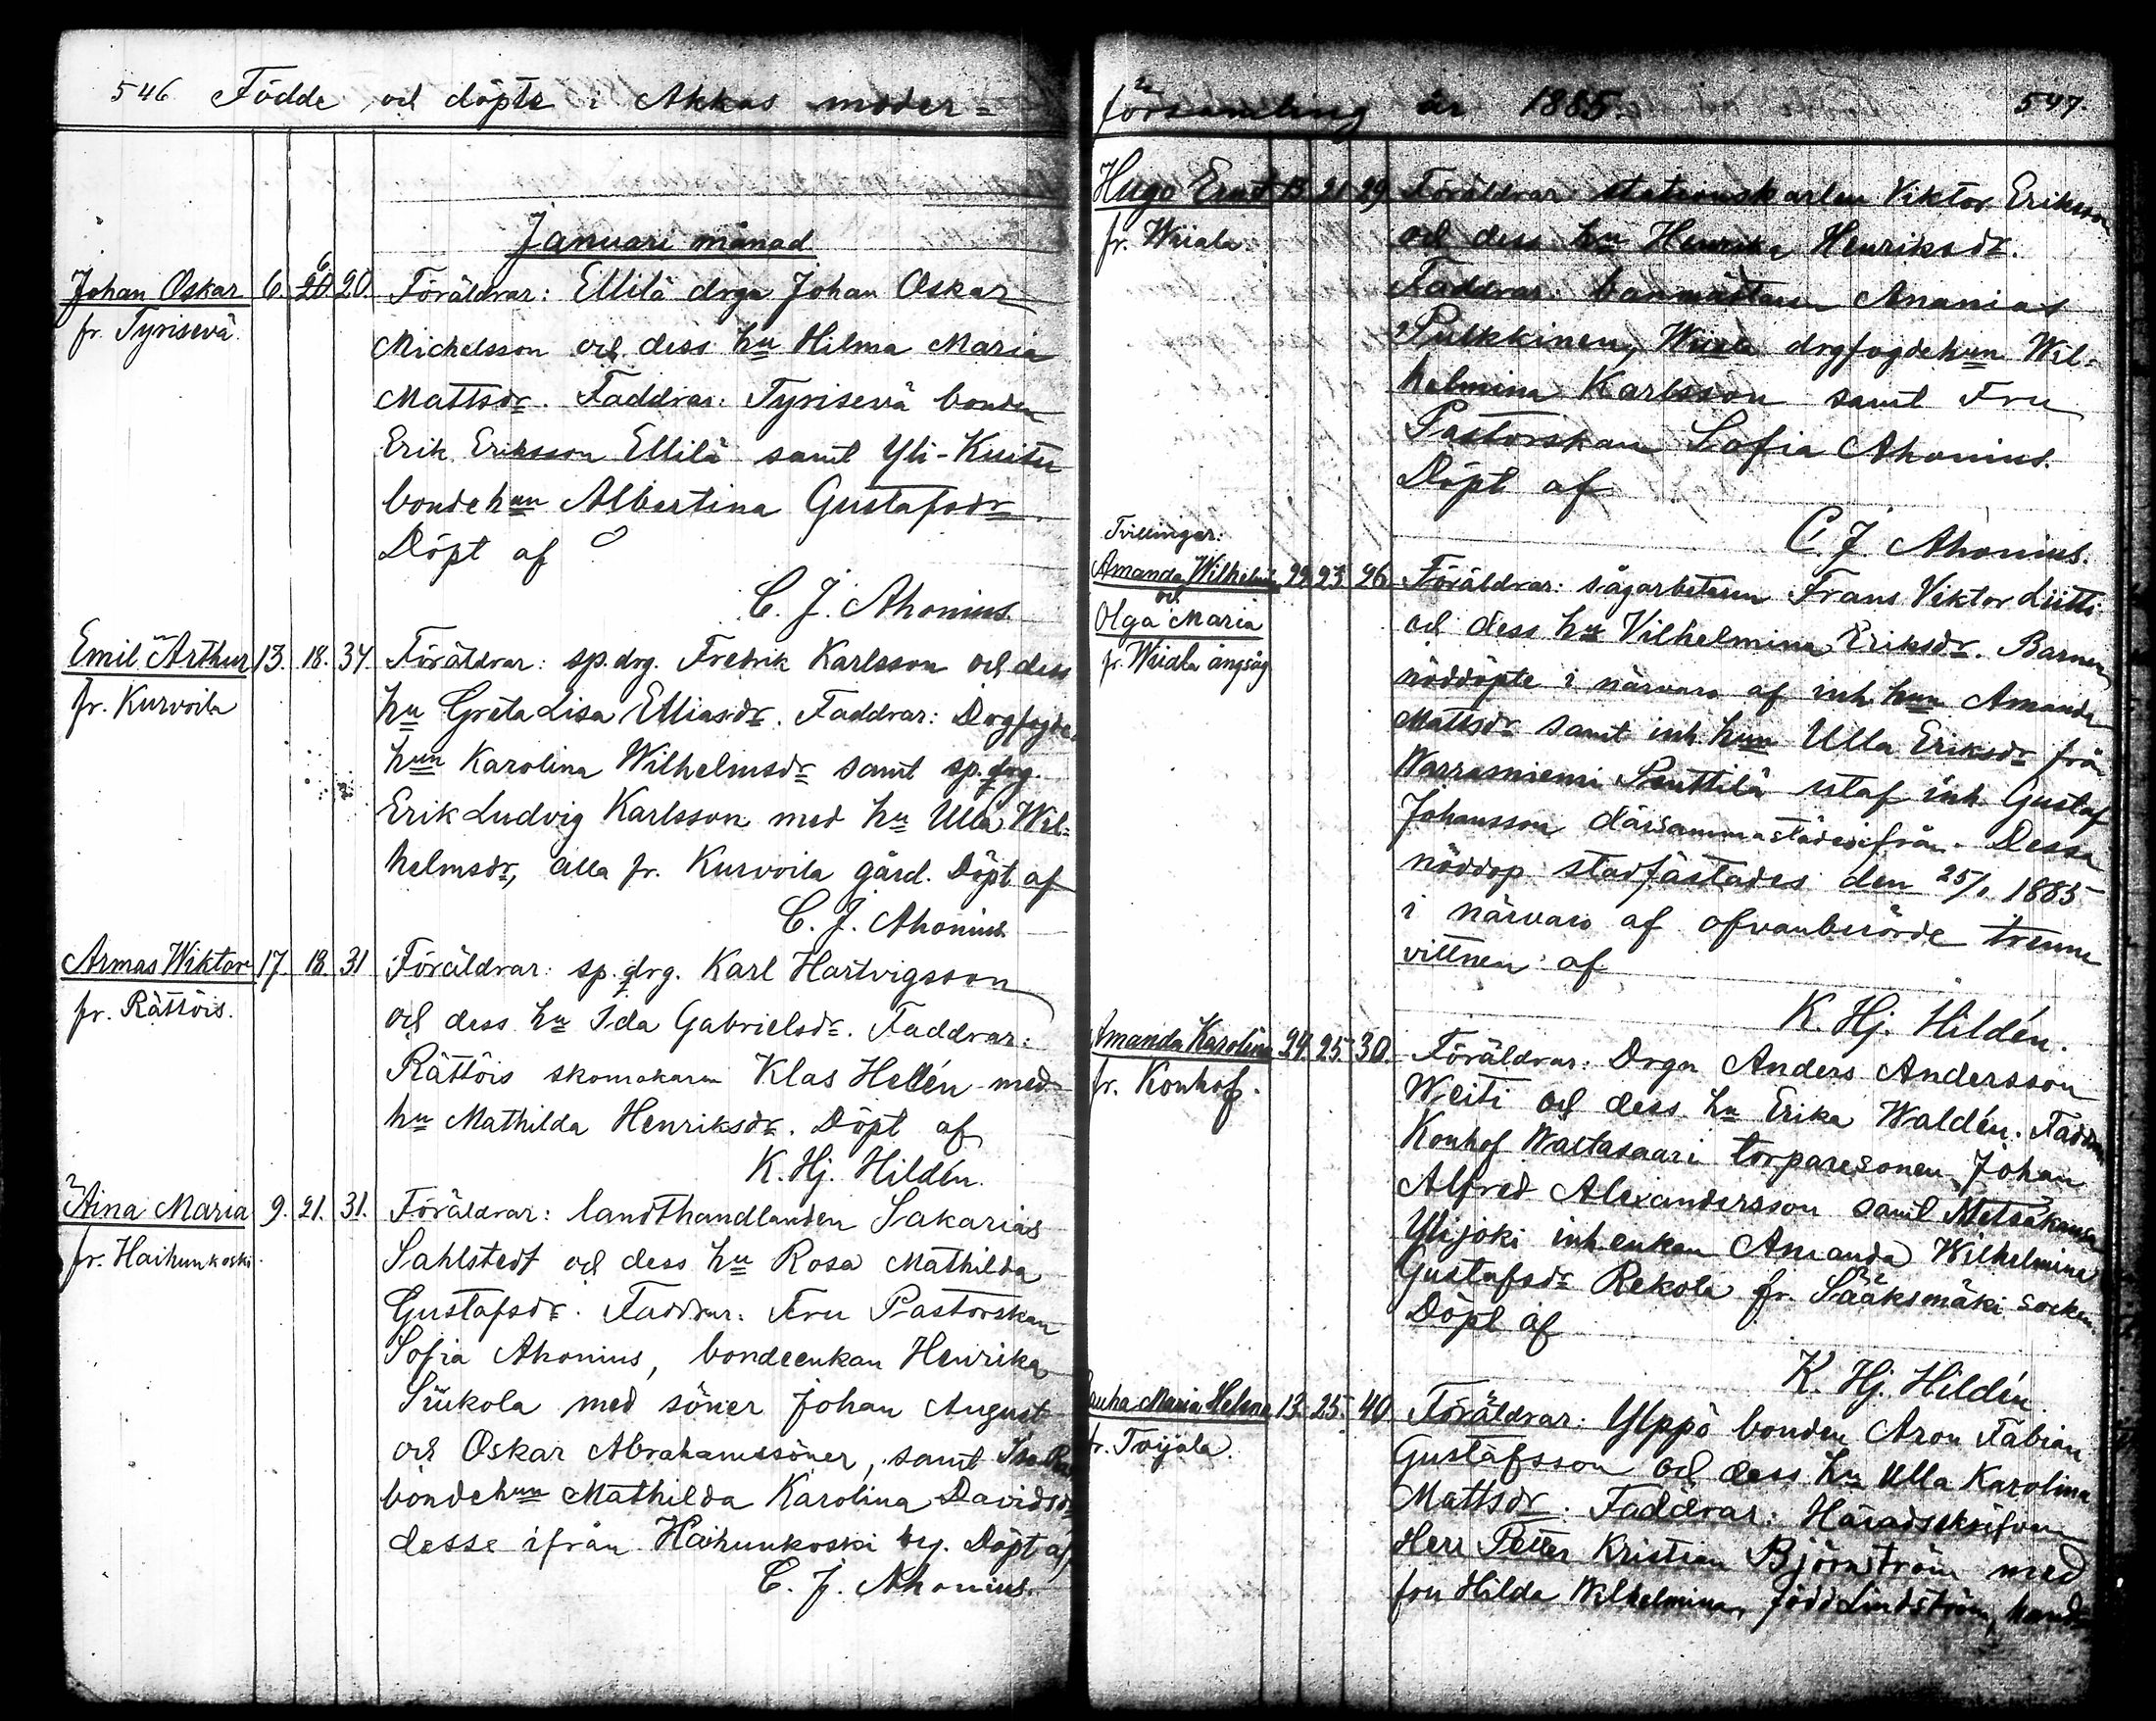 546 Födde och döpte i Akkas moder-
Januari månad
Johan Oskar 6. 20. 6 20. Föräldrar: Ellilä drgn Johan Oskar
fr. Tyrisevä. Michelsson och dess hu Hilma Maria
Mattsdr. Faddrar: Tyrisevä bonden
Erik Eriksson Ellilä samt Yli-Kuitu
bondehun Albertina Gustafsdr
Döpt af
C. J. Ahonius.
Emil Arthur 13. 18. 34. Föräldrar: sp.drg. Fredrik Karlsson och dess
fr. Kurvoila hu Greta Lisa Elliasdr. Faddrar: Drgfogde-
hun Karolina Wilhelmsdr samt sp.drg.
Erik Ludvig Karlsson med hu Ulla Wil-
helmsdr, alla fr. Kurvoila gård. Döpt af
C. J. Ahonius.
Armas Wiktor 17. 18. 31 Föräldrar: sp.drg. Karl Hartvigsson
fr. Rättöis. och dess hu Ida Gabrielsdr. Faddrar:
Rättöis skomakaren Klas Hellén med
hu Mathilda Henriksdr. Döpt af
K. Hj. Hildén.
Aina Maria 9. 21. 31. Föräldrar: landthandlanden Sakarias
fr. Haihunkoski. Sahlstedt och dess hu Rosa Mathilda
Gustafsdr. Faddrar: Fru Pastorskan
Sofia Ahonius, bondeenkan Henrika
Siukola med söner Johan August
och Oskar Abrahamssöner, samt
bondehun Mathilda Karolina Davidsdr
desse ifrån Haihunkoski by. Döpt af
C. J. Ahonius.
församling år 1885. 547.
Hugo Ernst 13. 21. 29. Föräldrar: stationskarlen Viktor Eriksson
fr. Wiiala. och dess hu Henrika Henriksdr.
Faddrar: banmästaren Ananias
Pulkkinen, Wiiala drgfogdehun Wil-
helmina Karlsson samt Fru
Pastorskan Sofia Ahonius.
Döpt af
C. J. Ahonius.
Tvillingar:
Amanda Wilhelmina 22. 23. 26. Föräldrar: sågarbetaren Frans Viktor Liitti
och
Olga Maria och dess hu Vilhelmina Eriksdr. Barnen
fr. Wiiala ångsåg nöddöpte i närvaro af inh. hun Amanda
Mattsdr samt inh. hun Ulla Eriksdr från
Warrasniemi Penttilä utaf inh. Gustaf
Johansson därsammastädesifrån. Dessa
nöddop stadfästades den 25/1 1885
i närvaro af ofvanberörde trenne
vittnen af
K. Hj. Hildén.
Amanda Karolina 24. 25. 30. Föräldrar: Drgn Anders Andersson
fr. Konhof. Weiti och dess hu Erika Waldén. Faddrar:
Konhof Waltasaari torparesonen Johan
Alfred Alexandersson samt Metsäkansa
Ylijoki inh.enkan Amanda Wilhelmina
Gustafsdr Rekola fr. Sääksmäki socken.
Döpt af
K. Hj. Hildén.
Maria Helena 13. 25. 40 Föräldrar: Ylppö bonden Aron Fabian
fr. Toijala. Gustafsson och dess hu Ulla Karolina
Mattsdr. Faddrar: Häradsskrifvaren
Herr Petter Kristian Björnström med
fru Hilda Wilhelmina, född Lindström, hand-